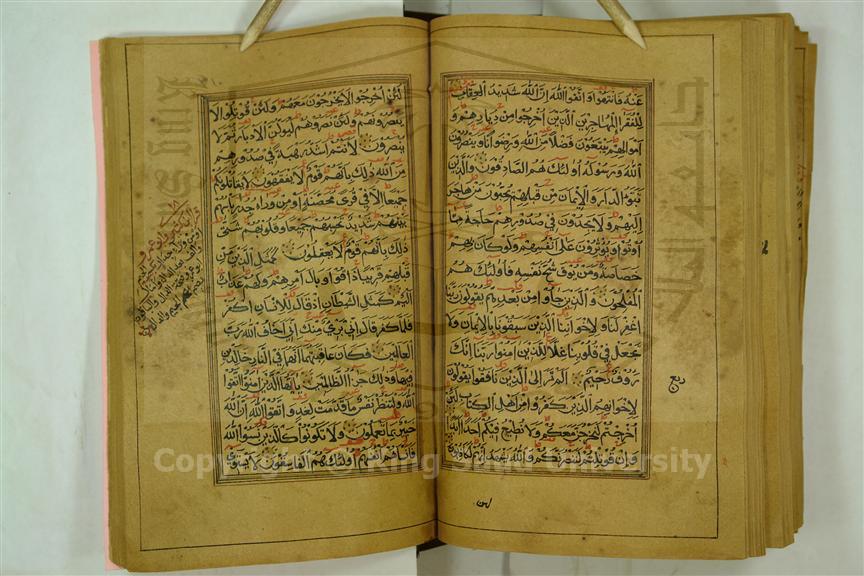 عنه فانتهوا واتقوا الله ان الله شديد العقاب
للفقراء المهاجرين الذين اخرجوا من ديارهم و
اموالهم يبتغون فضلا من الله ورضوانا وينصرون
الله ورسوله اولئك هم الصادقون والذين
تبوؤ الدار والايمان من قبلهم يحبون من هاجر
اليهم ولا يجدون في صدورهم حاجة مما
اوتوا ويؤثرون على انفسهم ولو كان بهم
خصاصة ومن يوق شح نفسه فاولئك هم
المفلحون والذين جاؤ من بعدهم يقولون ربنا
اغفر لنا ولاخواننا الذين سبقونا بالايمان ولا
تجعل في قلوبنا غلا للذين امنوا ربنا انك
رؤف رحيم الم تر الى الذين نافقوا يقولون
لاخوانهم الذين كفروا من اهل الكتاب لئن
اخرجتم لنخرجن معكم ولا نطيع فيكم احدا ابدا
وان قوتلتم لننصرنكم والله يشهد انهم لكاذبون
ربع
لئن
لئن اخرجوا لا يخرجون معهم ولئن قوتلوا لا
ينصرونهم ولئن نصروهم ليولن الادبار ثم لا
ينصرون لانتم اشد رهبة في صدورهم
من الله ذلك بانهم قوم لا يفقهون لا يقاتلونكم
جميعا الا في قرى محصنة او من وراء جدر باسهم
بينهم شديد تحسبهم جميعا وقلوبهم شتى
ذلك بانهم قوم لا يعقلون كمثل الذين من
قبلهم قريبا ذاقوا وبال امرهم ولهم عذاب
اليم كمثل الشيطان اذ قال للانسان اكفر
فلما كفر قال اني برئ منك اني اخاف الله رب
العالمين فكان عاقبتهما انهما في النار خالدين
فيها وذلك جزاؤ الظالمين يا ايها الذين امنوا اتقوا
الله ولتنظر نفس ما قدمت لغد واتقوا الله ان الله
خبير بما تعملون ولا تكونوا كالذين نسوا الله
فانساهم انفسهم اولئك هم الفاسقون لا يستوي
Copyright © King Saud University